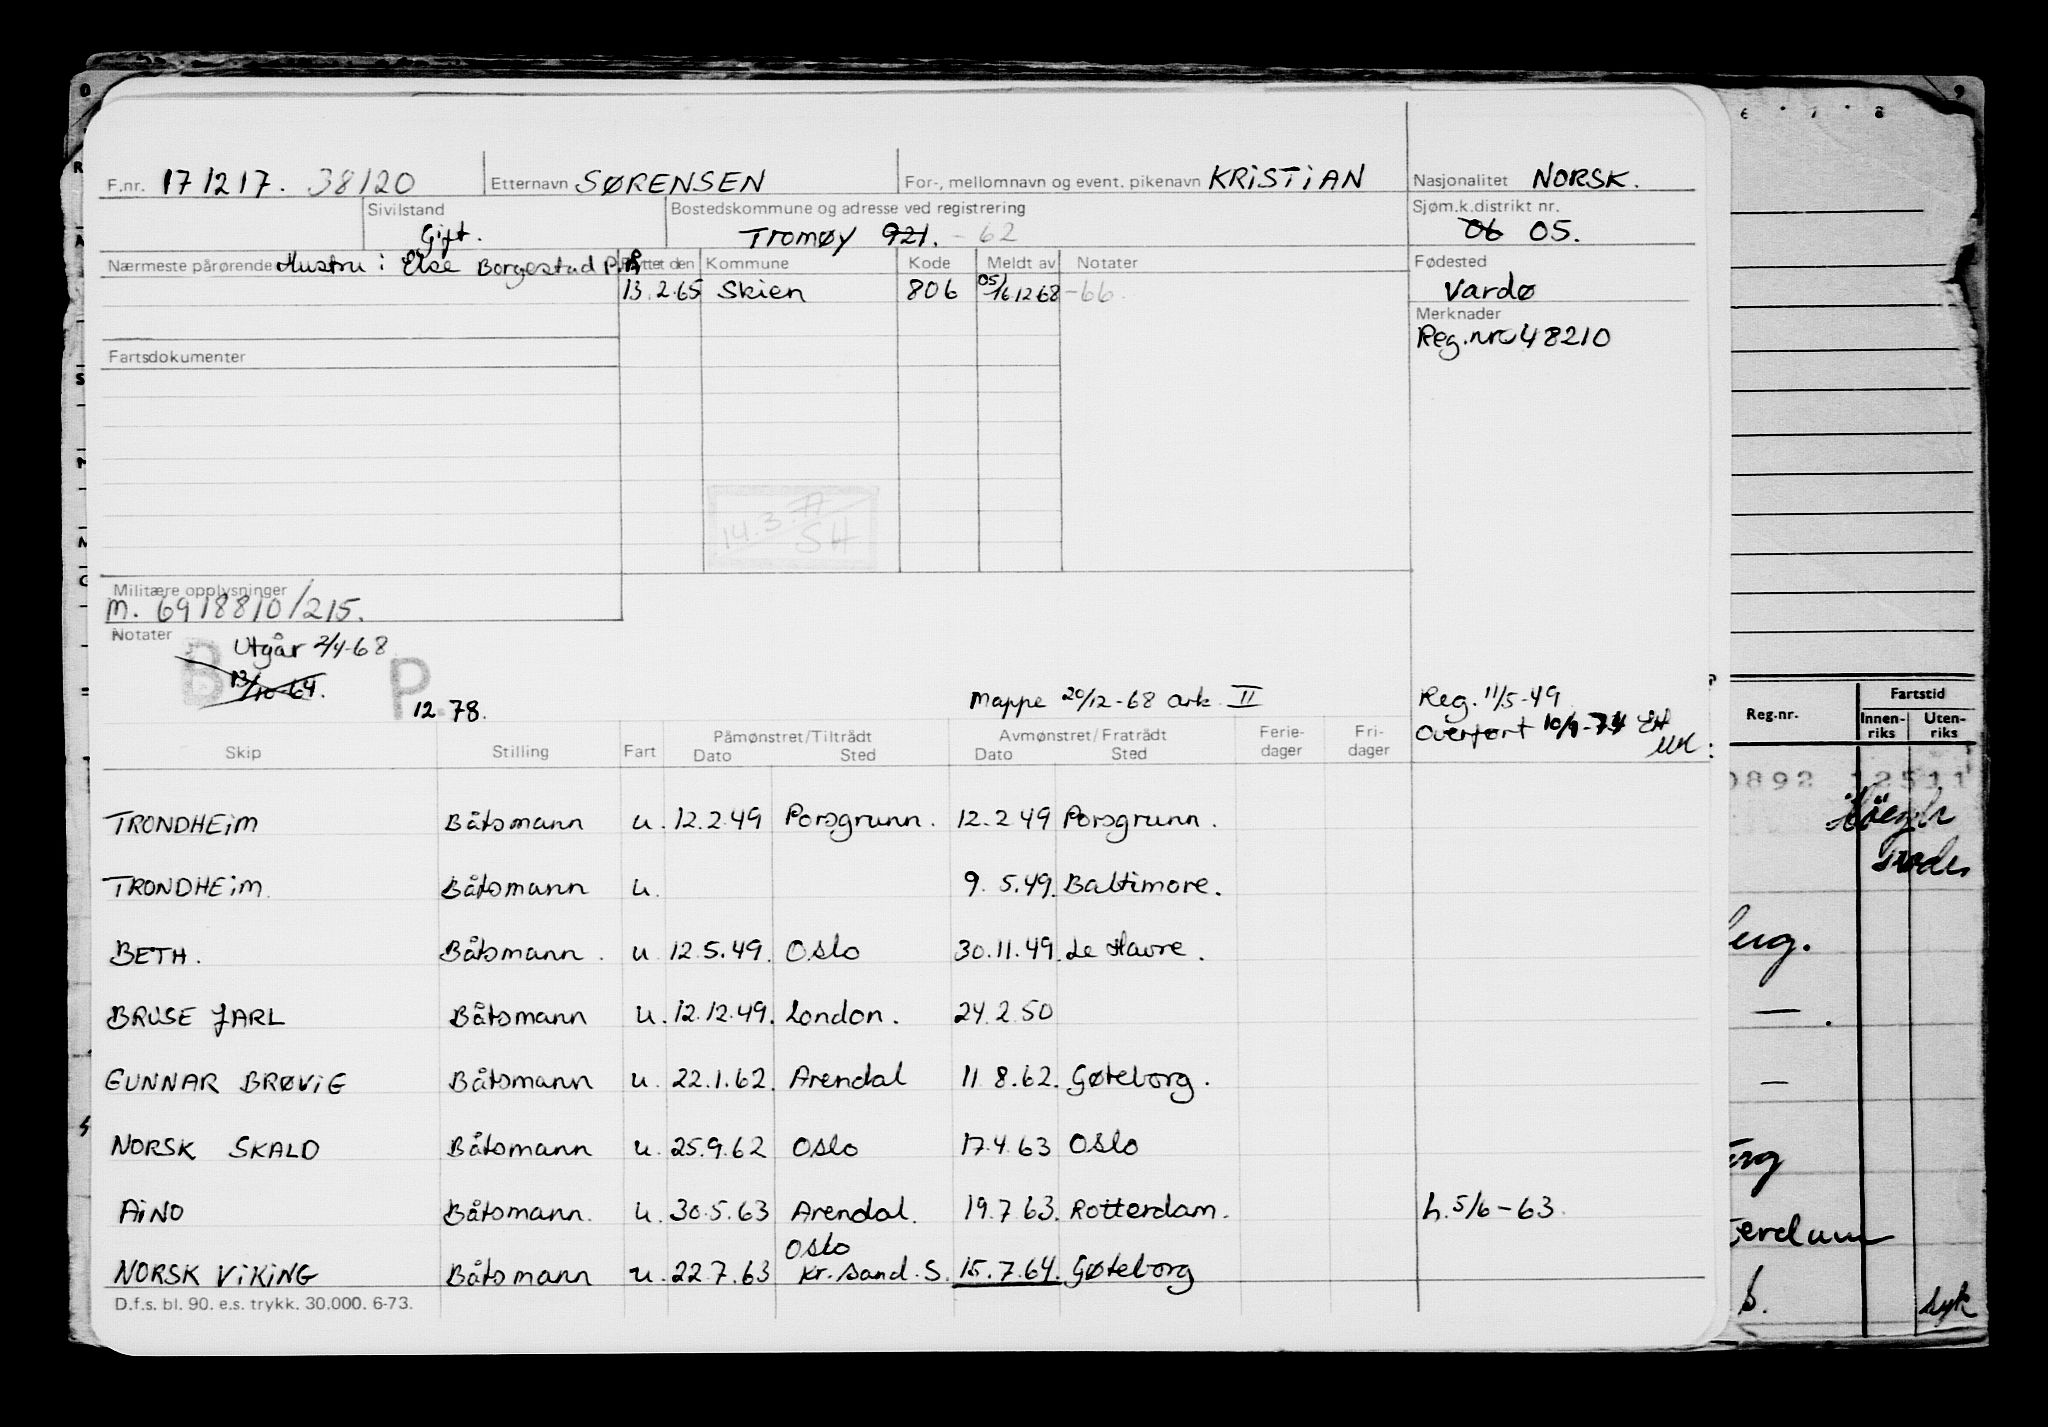 F.nr. 171217. 38120 Etternavn SØRENSEN For-, mellomnavn og event. pikenavn KRISTIAN Nasjonalitet NORSK.
Sivilstand Bostedskommune og adresse ved registrering Sjøm.k.distrikt nr.
Gift. Tromøy 921. - 62 06 05.
Nærmeste pårørende Hustru : Else Borgestad Flyttet den Kommune Kode Meldt av Notater Fødested
13.2.65 Skien 806 05/16 12 68 -66. Vardø
Merknader
Reg.nr. 48210
Fartsdokumenter
14.3.77
SH
Militære opplysninger
M. 6918810/215.
Notater
B Utgår 2/4-68
13/10-64.
P. 12.78.
Mappe 20/12-68 ark. II
Reg. 11/5-49
Overført
Skip Stilling Fart Påmønstret/Tiltrådt Dato Sted Avmønstret/Fratrådt Dato Sted Ferie-dager Fri-dager
TRONDHEIM Båtsmann u. 12.2.49 Porsgrunn. 12.2 49 Porsgrunn.
TRONDHEIM. Båtsmann u. 9. 5.49. Baltimore.
BETH. Båtsmann. u 12.5.49. Oslo 30.11.49. Le Havre.
BRUSE JARL Båtsmann u. 12.12.49. London. 24.2.50
GUNNAR BRØVIG Båtsmann u. 22.1.62. Arendal 11 8.62. Gøteborg.
NORSK SKALD Båtsmann u. 25.9.62 Oslo 17.4.63 Oslo
AINO Båtsmann. u. 30.5.63 Arendal. 19.7.63. Rotterdam. h. 5/6-63.
Oslo
NORSK VIKING Båtsmann u. 22.7.63 Kr.sand.S. 15.7.64. Gøteborg
D.f.s. bl. 90. e.s. trykk. 30.000. 6-73.
Reg.nr. Fartstid
Innen-riks Uten-riks
0892 12511